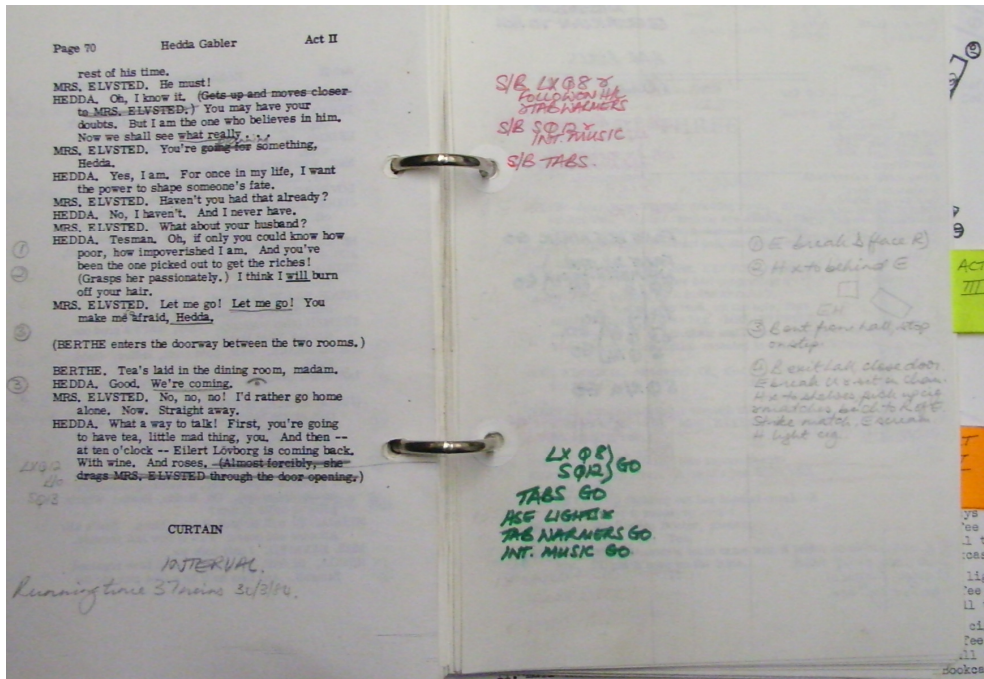 Page 70 Hedda Gabler Act II
rest of his time.
MRS. ELVSTED. He must!
HEDDA. Oh, I know it. (Gets up and moves closer
to MRS. ELVSTED.) You may have your
doubts. But I am the one who believes in him.
Now we shall see what really . . .
MRS. ELVSTED. You're going for something,
Hedda.
HEDDA. Yes, I am. For once in my life, I want
the power to shape someone's fate.
MRS. ELVSTED. Haven't you had that already?
HEDDA. No, I haven't. And I never have.
MRS. ELVSTED. What about your husband?
HEDDA. Tesman. Oh, if only you could know how
① poor, how impoverished I am. And you've
been the one picked out to get the riches!
② (Grasps her passionately.) I think I will burn
off your hair.
MRS. ELVSTED. Let me go! Let me go! You
make me afraid, Hedda.
③
(BERTHE enters the doorway between the two rooms.)
BERTHE. Tea's laid in the dining room, madam.
③ HEDDA. Good. We're coming.
MRS. ELVSTED. No, no, no! I'd rather go home
alone. Now. Straight away.
HEDDA. What a way to talk! First, you're going
to have tea, little mad thing, you. And then --
at ten o'clock -- Eilert Lövborg is coming back.
With wine. And roses. (Almost forcibly, she
drags MRS. ELVSTED through the door opening.)
CURTAIN
INTERVAL.
Running time 37mins
S/B LX Q8 &
FOLLOWON H/L
& TAB WARMERS
S/B SQ12 &
INT. MUSIC
S/B TABS.
① E break & face R)
② H x to behind E
EH
③ B ent from hall, stop
on step.
④ B exit hall, close door.
E break
H x to shelves, pick up
matches, back to
Strike match. E scream
H light cig.
LX Q8 } GO
SQ12
TABS GO
ASE LIGHT
TAB WARMERS GO
INT. MUSIC GO
ACT
III